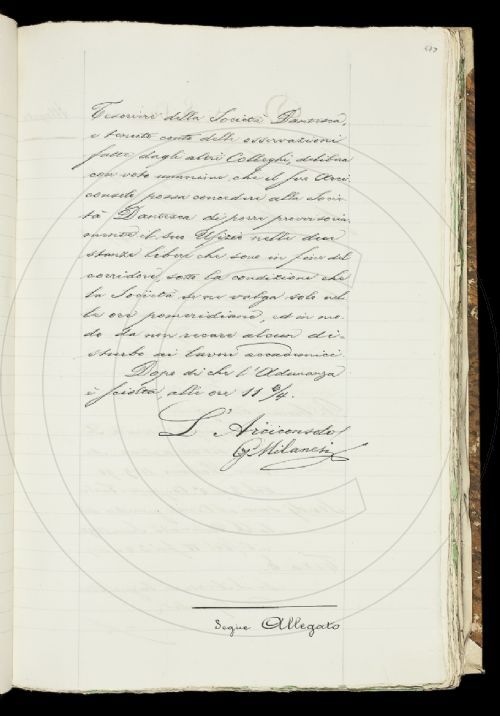 Tesoriere della Società Dantesca,
e tenuto conto delle osservazioni
fatte dagli altri Colleghi, delibera
con voto unanime che il Sig. Arci
consolo possa concedere alla Socie-
tà Dantesca di porre provvisoria-
mente il suo Ufizio nelle due
stanze libere che sono in fine del
corridore, sotto la condizione che
la Società se ne valga solo nel
le ore pomeridiane, ed in mo-
do da non recare alcun di-
sturbo ai lavori accademici.
Dopo di che l'Adunanza
è sciolta, alle ore 11 3/4.
L'Arciconsolo
G. Milanesi
Segue Allegato